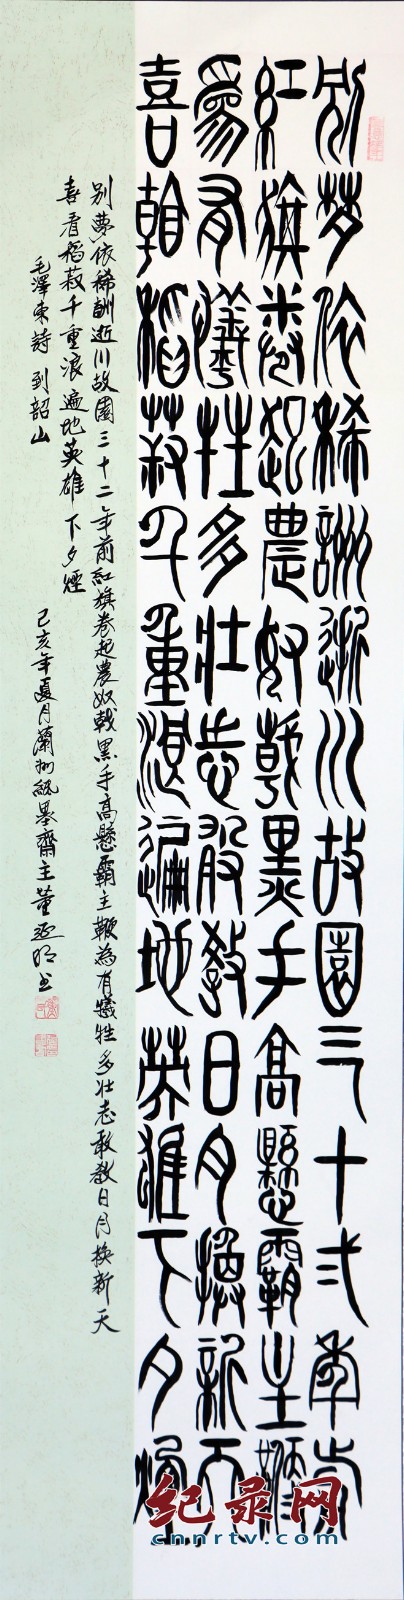 别梦依稀詶逝川故園三十弍年前
紅旗卷起農奴戟黑手高懸霸主鞭
為有犧牲多壯志敢教日月換新天
喜看稻菽千重浪遍地英雄下夕煙
别夢依稀酬逝川故園三十二年前紅旗卷起農奴戟黑手高懸霸主鞭為有犧牲多壯志敢教日月換新天
喜看稻菽千重浪遍地英雄下夕煙
毛澤東詩 到韶山
己亥年夏月蘭州墨齋主董
纪录网
cnnrtv.com